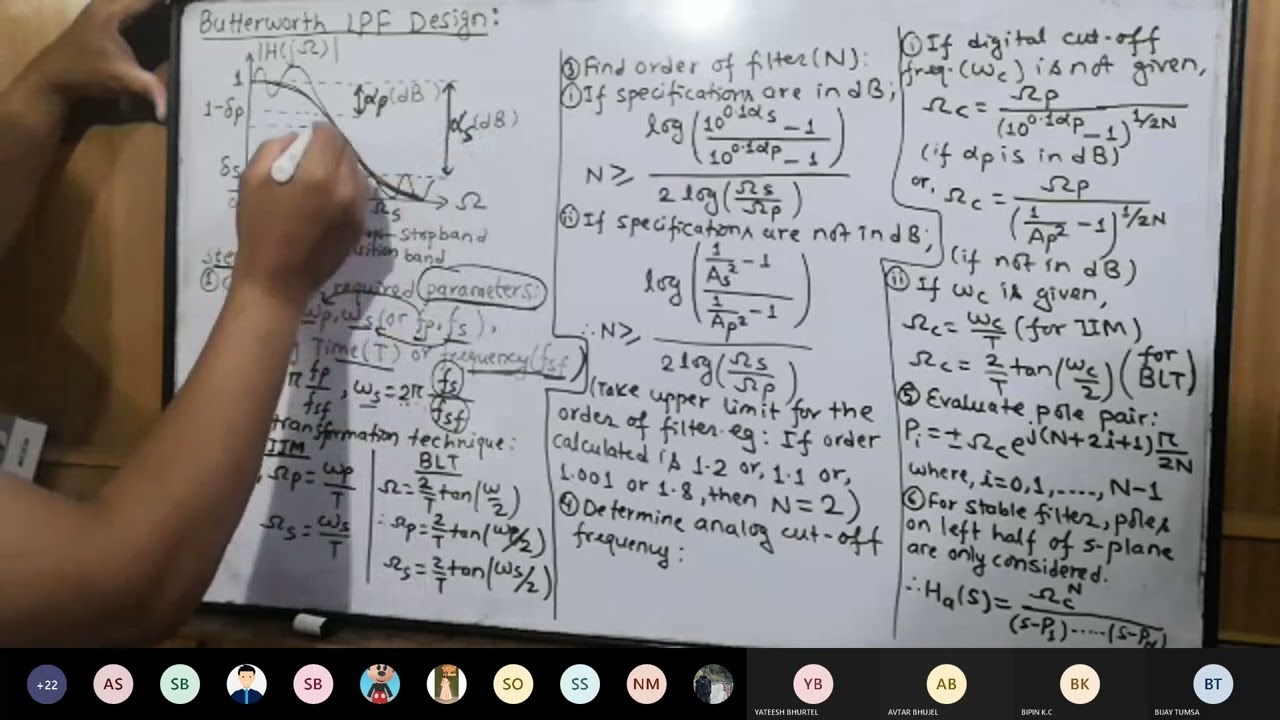 Butterworth LPF Design:
|H(jΩ)|
1
1-δp
δs
αp(dB)
αs(dB)
Ω
Ωs
Stopband
band
required parameters:
ωp, ωs (or fp, fs),
Time(T) or frequency(fsf)
fp/fsf, ωs = 2π fs/fsf
transformation technique:
IIM
Ωp = ωp/T
Ωs = ωs/T
BLT
Ω = 2/T tan(ω/2)
∴ Ωp = 2/T tan(ωp/2)
Ωs = 2/T tan(ωs/2)
③ Find order of filter(N):
ⓘ If specifications are in dB;
N ≥ log((10^0.1αs - 1)/(10^0.1αp - 1)) / 2 log(Ωs/Ωp)
ⅱ If specifications are not in dB;
∴ N ≥ log((1/As² - 1)/(1/Ap² - 1)) / 2 log(Ωs/Ωp)
(Take upper limit for the
order of filter. eg: If order
calculated is 1.2 or, 1.1 or,
1.001 or 1.8, then N = 2)
④ Determine analog cut-off
frequency:
ⓘ If digital cut-off
freq. (ωc) is not given,
Ωc = Ωp/(10^0.1αp - 1)^1/2N
(if αp is in dB)
or, Ωc = Ωp/(1/Ap² - 1)^1/2N
(if not in dB)
ⅱ If ωc is given,
Ωc = ωc/T (for IIM)
Ωc = 2/T tan(ωc/2) (for BLT)
⑤ Evaluate pole pair:
Pi = ± Ωc e^j(N+2i+1)π/2N
where, i = 0,1,....., N-1
⑥ For stable filter, poles
on left half of s-plane
are only considered.
∴ Ha(s) = Ωc^N/(s-P1).....(s-PN)
+22
AS
SB
SB
SO
SS
NM
YB
AB
BK
BT
YATEESH BHURTEL
AVTAR BHUJEL
BIPIN K.C
BIJAY TUMSA